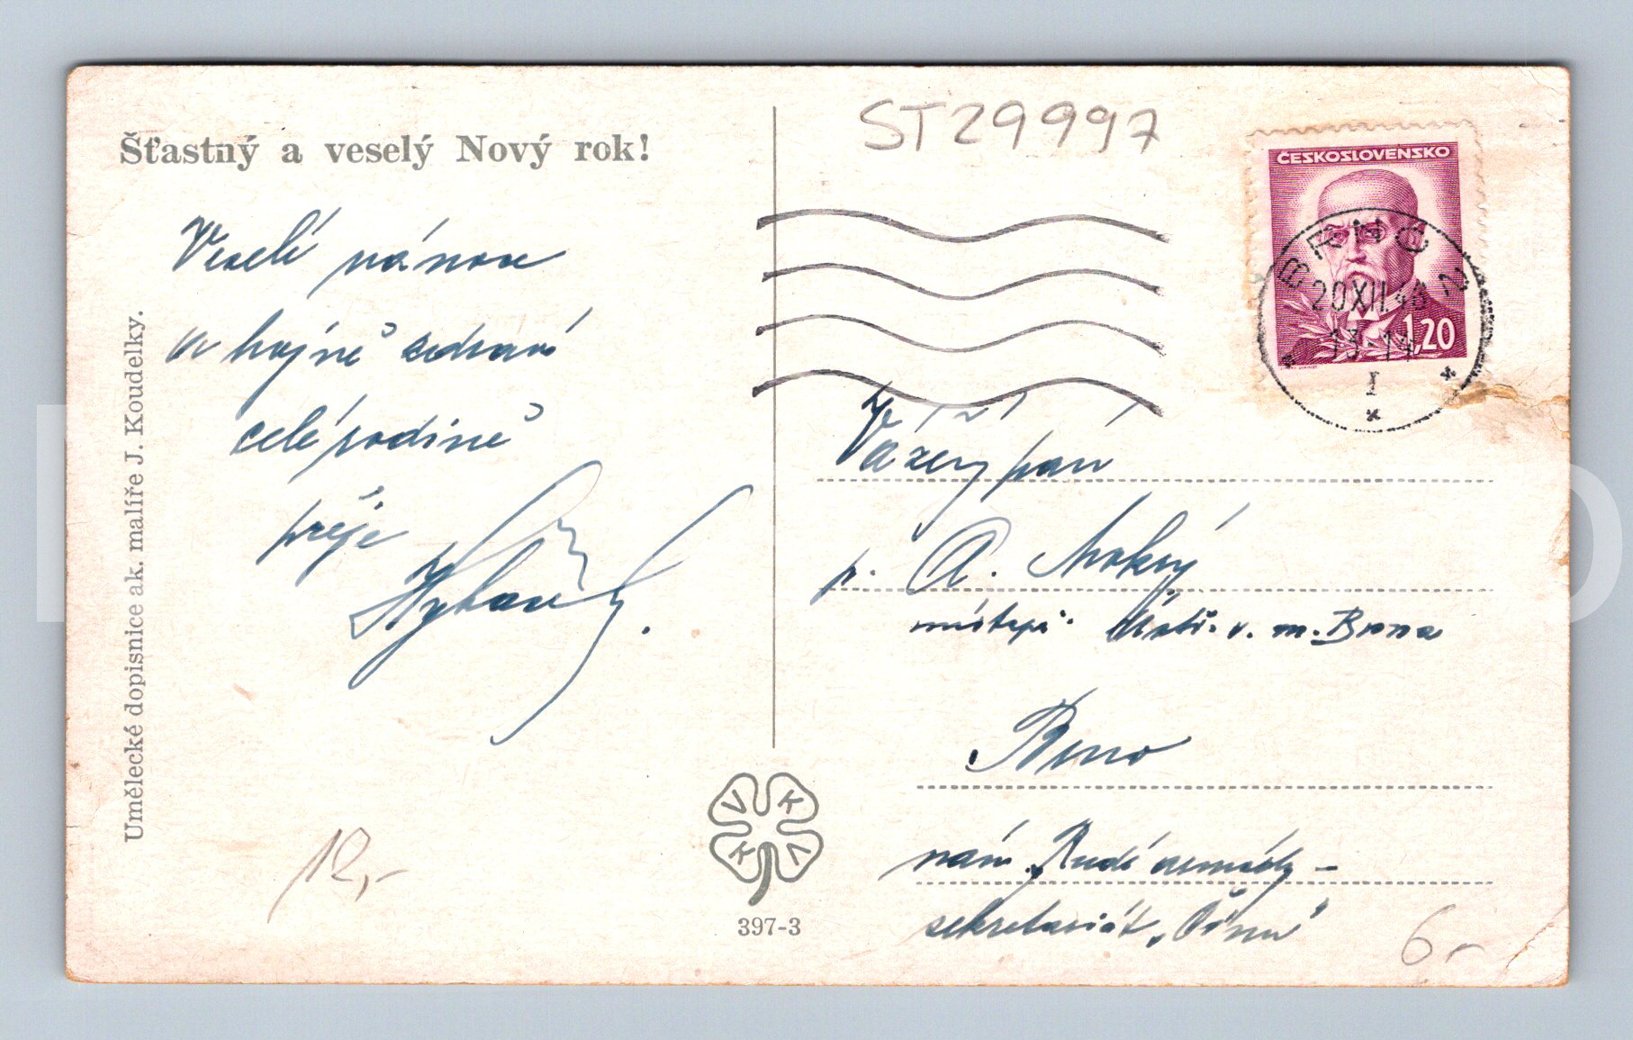 Šťastný a veselý Nový rok!
ST29997
ČESKOSLOVENSKO
1,20
BRNO 2
20.XII.46
13-14
I
Veselé vánoce
a hojně zdraví
celé rodině
přeje
Umělecké dopisnice ak. malíře J. Koudelky.
Vážený pán
p. A. Mokrý
místopř. v. m. Brna
Brno
nám. Rudé armády –
sekretariát
V K V K
397-3
12,-
6,-